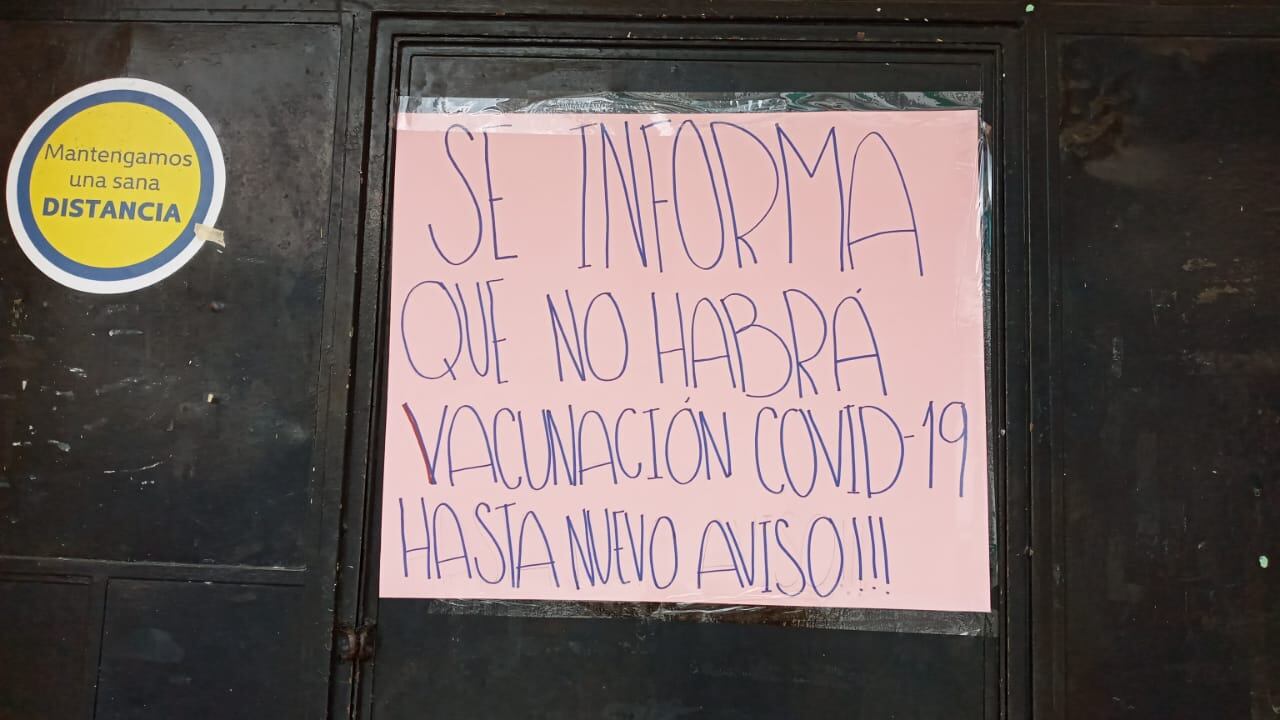 Mantengamos
una sana
DISTANCIA
SE INFORMA
QUE NO HABRÁ
VACUNACIÓN COVID-19
HASTA NUEVO AVISO!!!